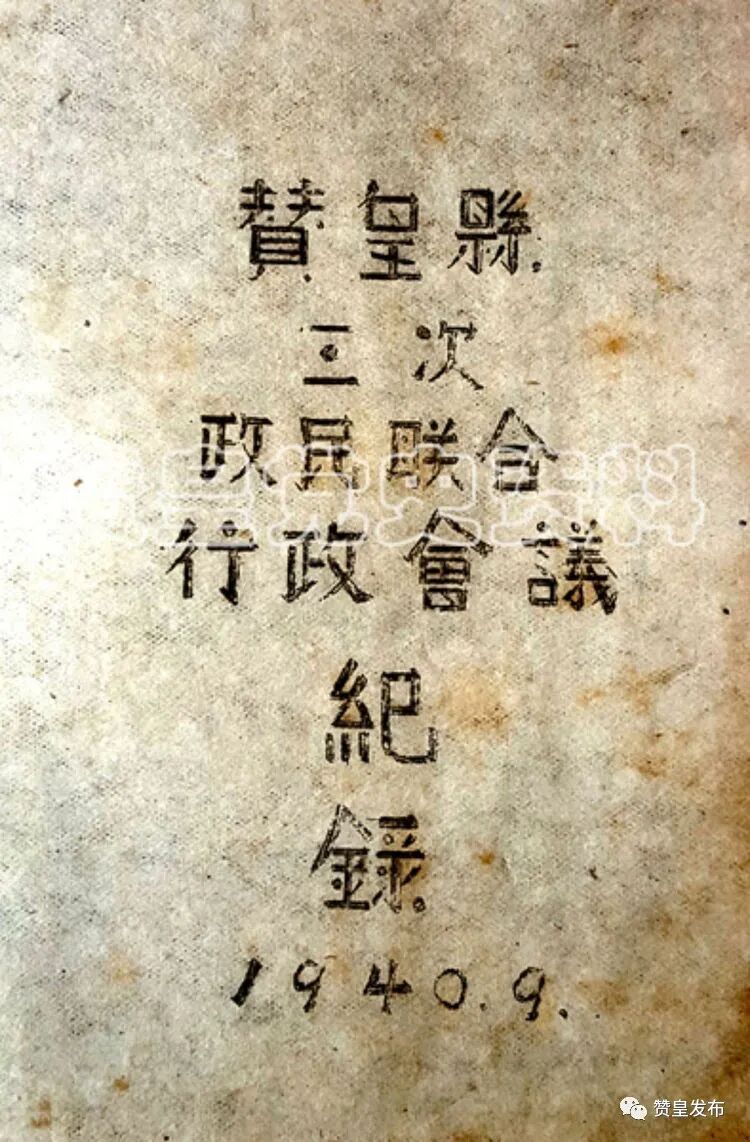 賛皇縣.
三次
政民联合
行政會議
紀
錄.
1940.9.
赞皇发布